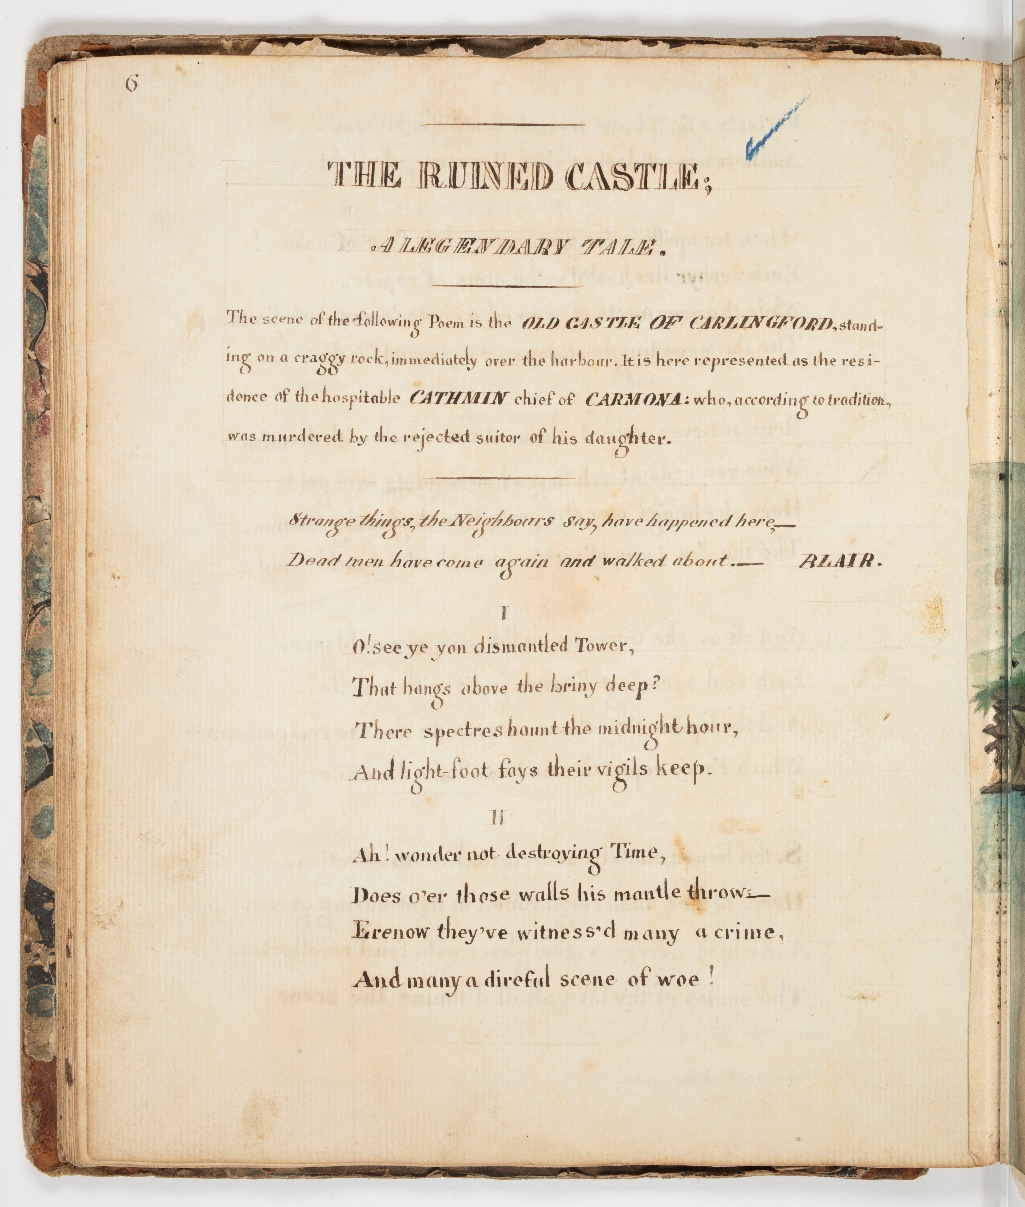 6
THE RUINED CASTLE;
A LEGENDARY TALE.
The scene of the following Poem is the OLD CASTLE OF CARLINGFORD, stand-
ing on a craggy rock, immediately over the harbour. It is here represented as the resi-
dence of the hospitable CATHMIN chief of CARMONA: who, according to tradition,
was murdered by the rejected suitor of his daughter.
Strange things, the Neighbours say, have happened here,—
Dead men have come again and walked about.— BLAIR.
I
O! see ye yon dismantled Tower,
That hangs above the briny deep?
There spectres haunt the midnight hour,
And light-foot fays their vigils keep.
II
Ah! wonder not destroying Time,
Does o'er those walls his mantle throw:—
Erenow they've witness'd many a crime,
And many a direful scene of woe!